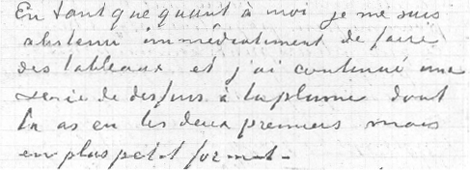 En tant que quant à moi je me suis
abstenu immédiatement de faire
des tableaux et j'ai continué une
serie de dessins à la plume dont
tu as eu les deux premiers mais
en plus petit format -